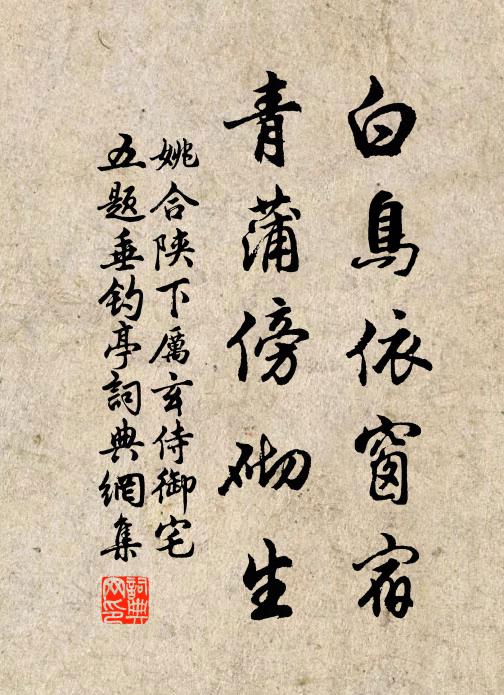 白鳥依窗宿
青蒲傍砌生
姚合陝下厲玄侍御宅
五題垂釣亭詞典網集
詞典網印